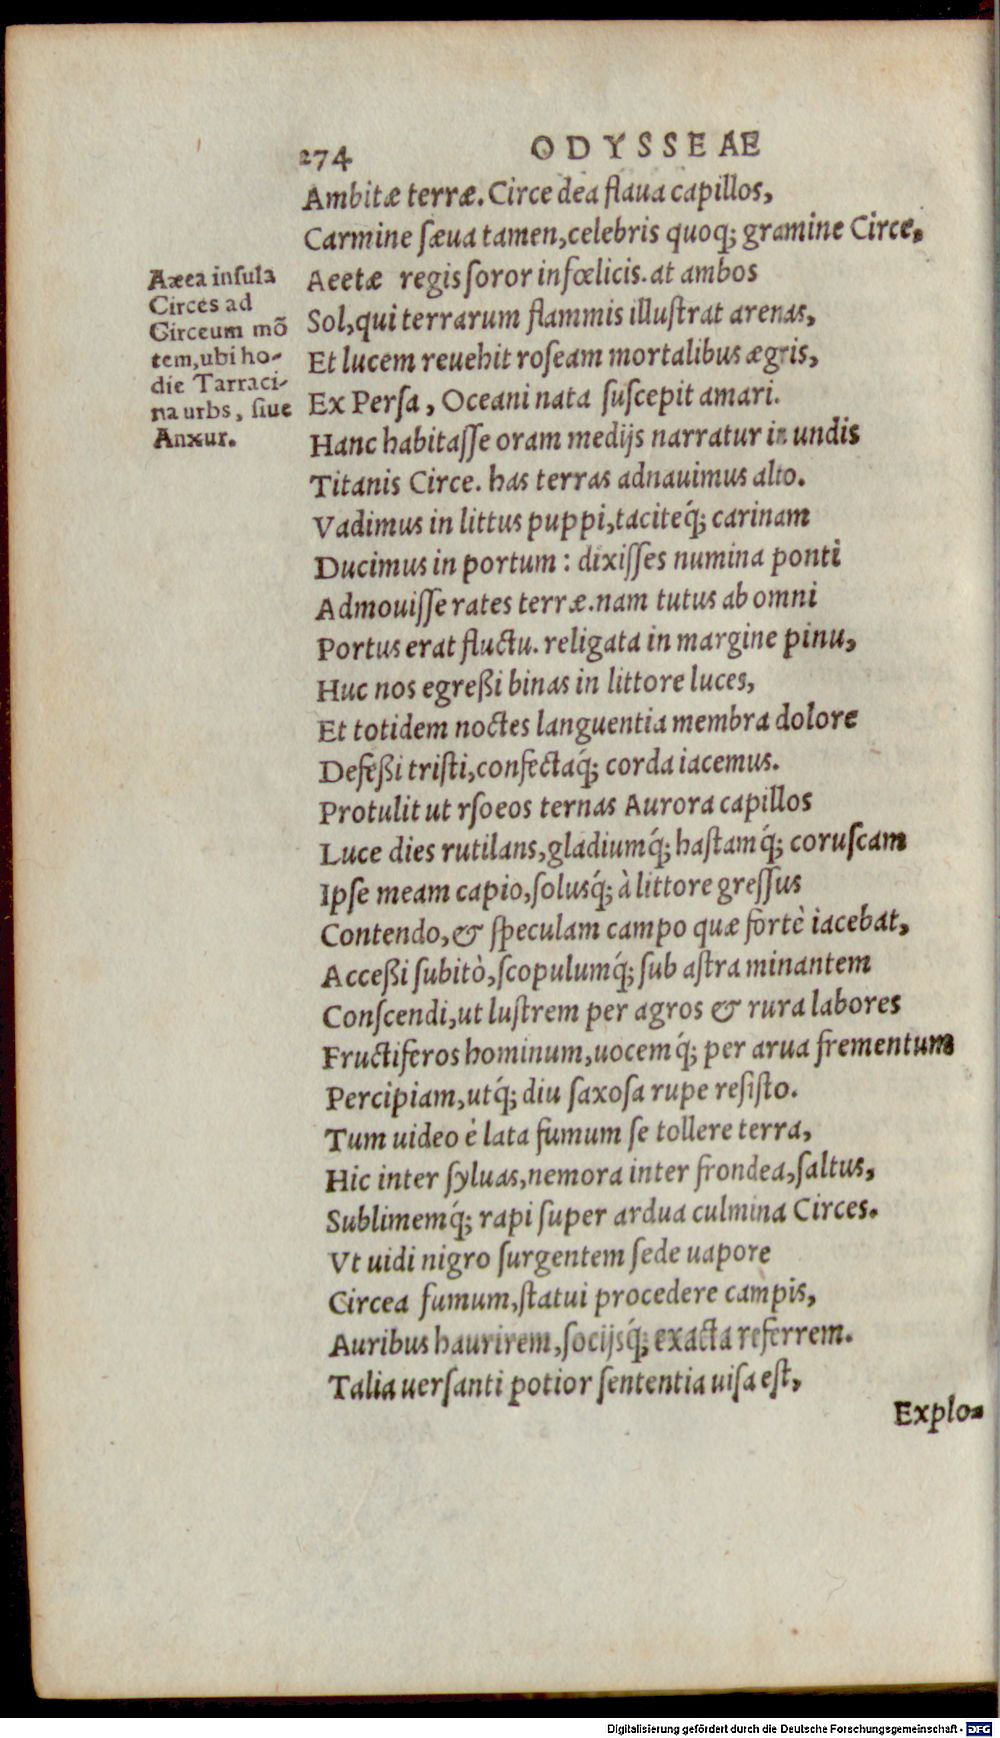 274 ODYSSEAE
Ambitæ terræ. Circe dea flaua capillos,
Carmine sæua tamen, celebris quoq; gramine Circe,
Aeetæ regis soror infœlicis. at ambos
Sol, qui terrarum flammis illustrat arenas,
Et lucem reuehit roseam mortalibus ægris,
Ex Persa, Oceani nata suscepit amari.
Hanc habitasse oram medijs narratur in undis
Titanis Circe. has terras adnauimus alto.
Vadimus in littus puppi, taciteq́; carinam
Ducimus in portum: dixisses numina ponti
Admouisse rates terræ. nam tutus ab omni
Portus erat fluctu. religata in margine pinu,
Huc nos egreßi binas in littore luces,
Et totidem noctes languentia membra dolore
Defeßi tristi, confectaq́; corda iacemus.
Protulit ut rsoeos ternas Aurora capillos
Luce dies rutilans, gladiumq́; hastamq́; coruscam
Ipse meam capio, solusq́; à littore gressus
Contendo, & speculam campo quæ fortè iacebat,
Acceßi subitò, scopulumq́; sub astra minantem
Conscendi, ut lustrem per agros & rura labores
Fructiferos hominum, uocemq́; per arua frementum
Percipiam, utq́; diu saxosa rupe resisto.
Tum uideo è lata fumum se tollere terra,
Hic inter syluas, nemora inter frondea, saltus,
Sublimemq́; rapi super ardua culmina Circes.
Vt uidi nigro surgentem sede uapore
Circea fumum, statui procedere campis,
Auribus haurirem, socijsq́; exacta referrem.
Talia uersanti potior sententia uisa est,
Explo-
Aæea insula
Circes ad
Circeum mõ
tem, ubi ho-
die Tarraci-
na urbs, siue
Anxur.
Digitalisierung gefördert durch die Deutsche Forschungsgemeinschaft - DFG